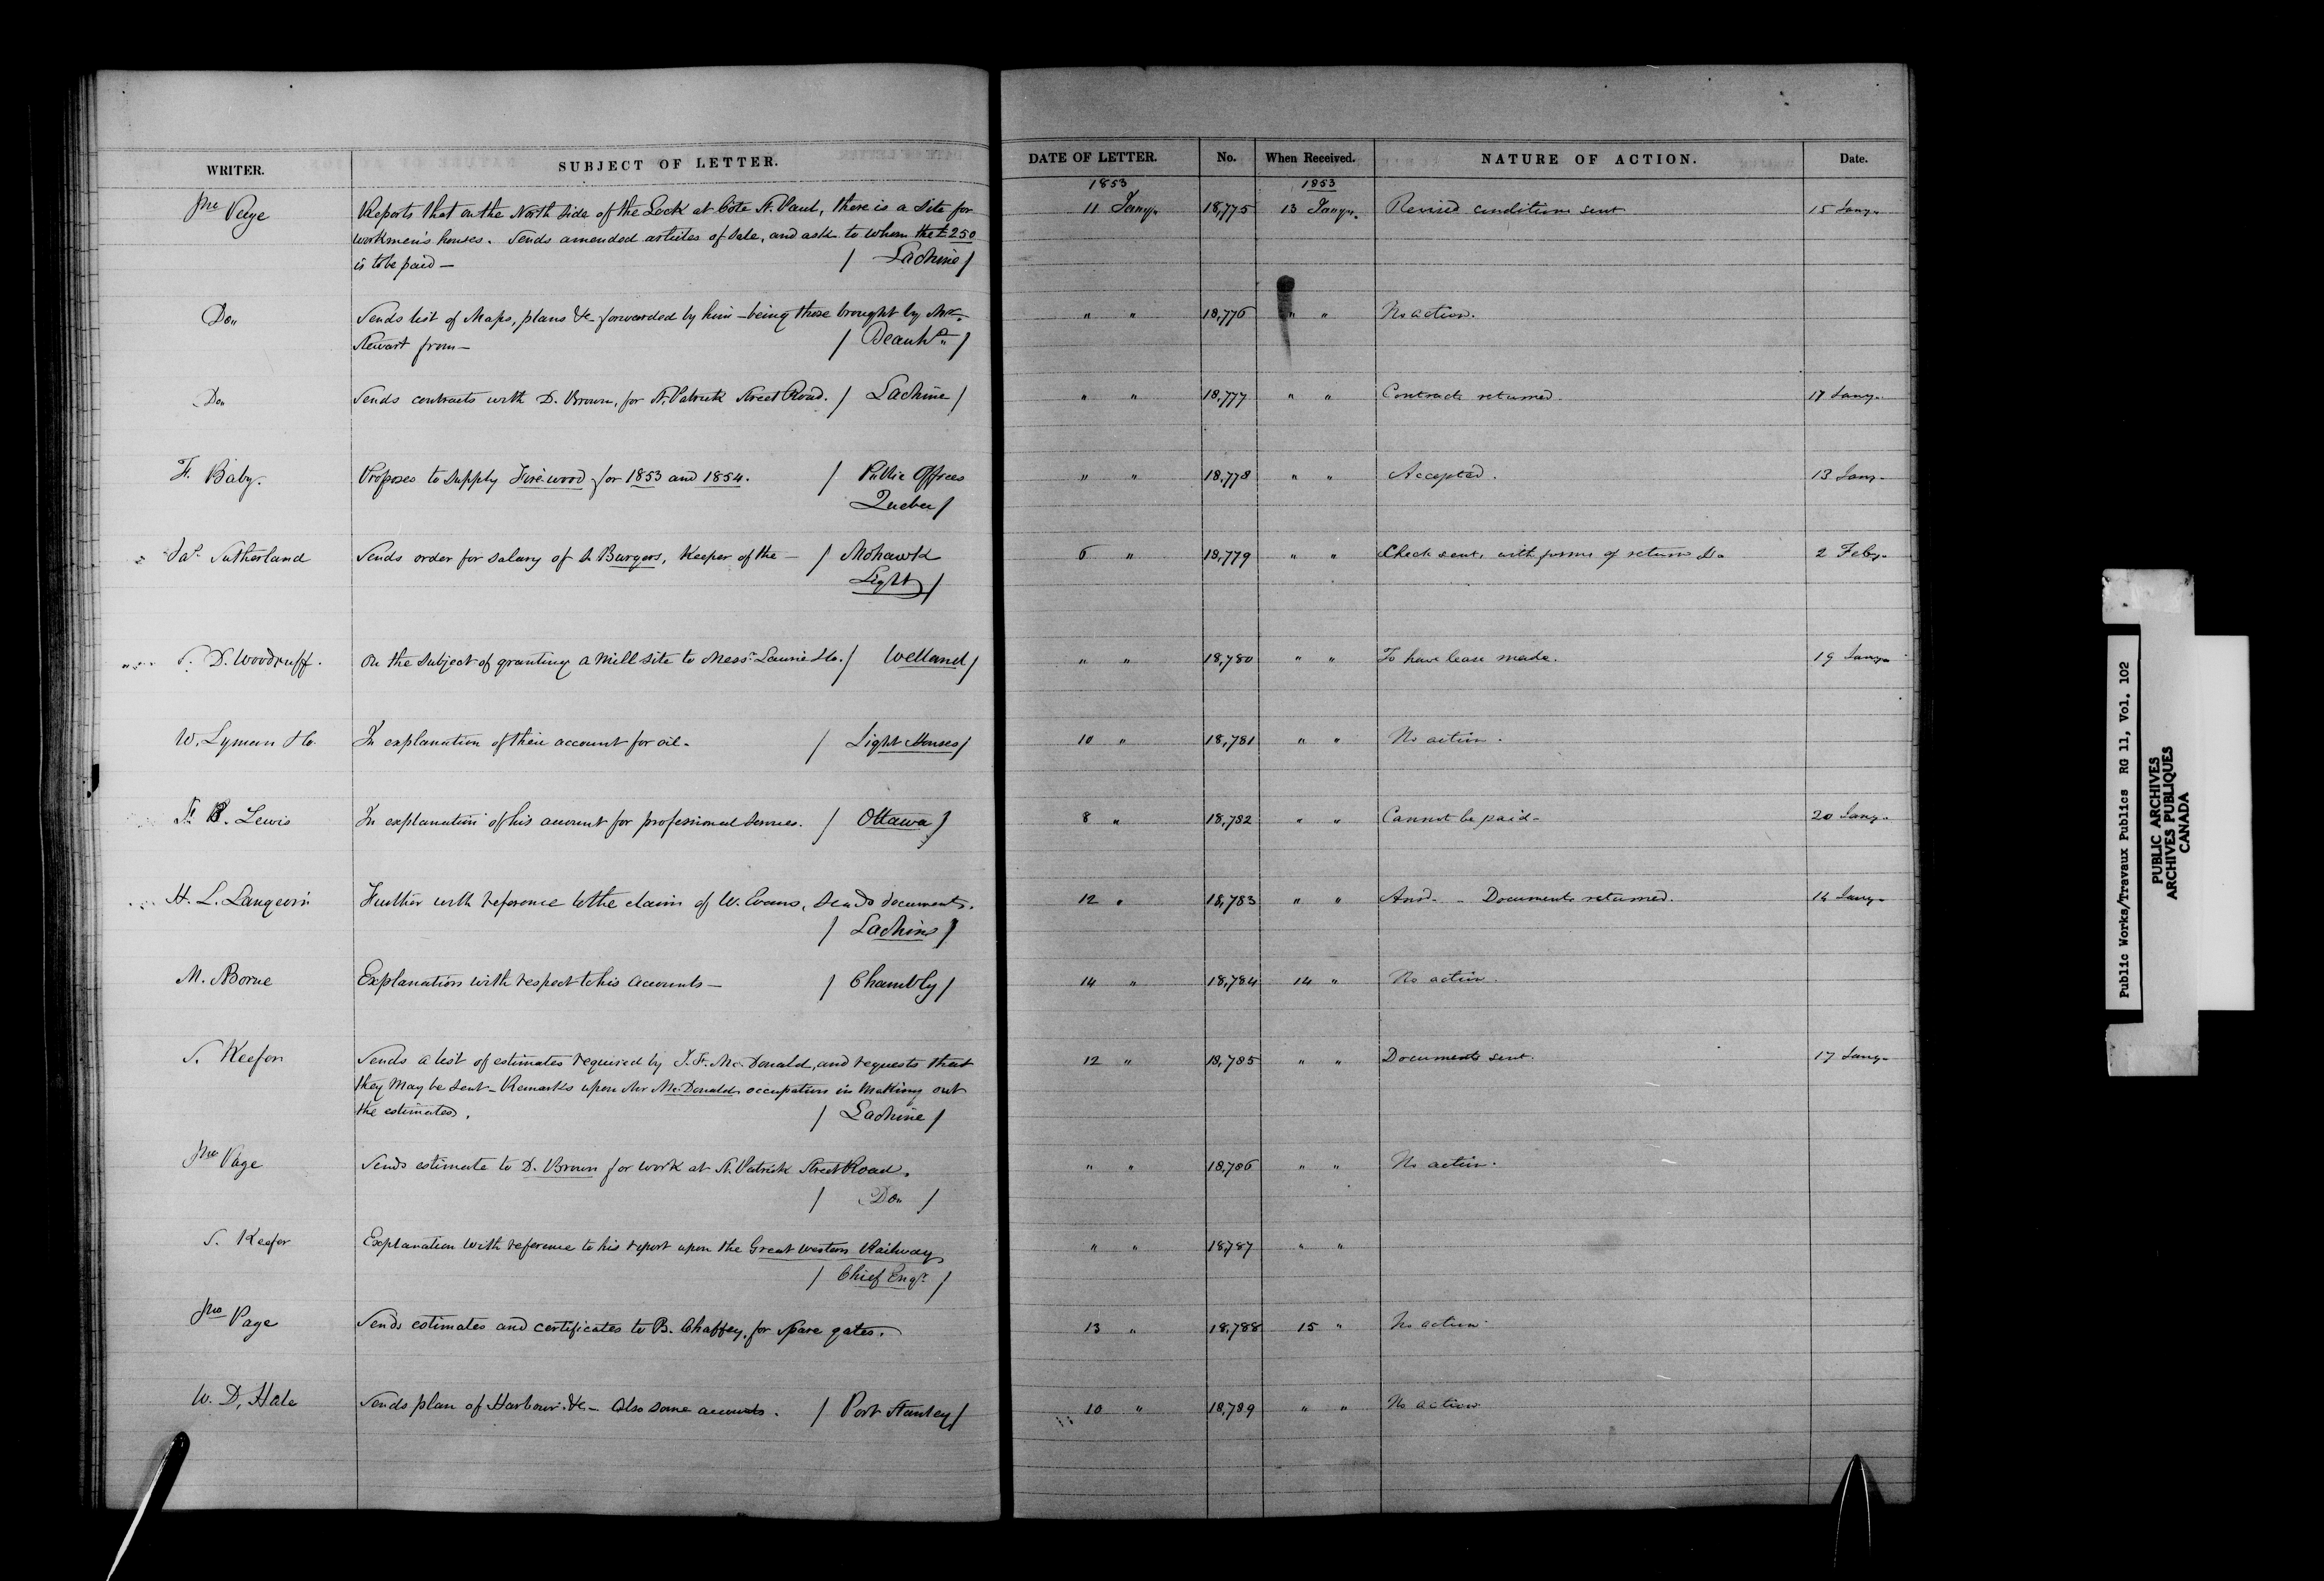 WRITER. SUBJECT OF LETTER. DATE OF LETTER. No. When Received. NATURE OF ACTION. Date.
1853 1853
Jno Page Reports that on the North side of the Lock at Côte St. Paul, there is a site for 11 Jany. 18,775 13 Jany. Revised conditions sent 15 Jany.
workmen's houses. Sends amended articles of sale, and ask to whom the £250
is to be paid — / Lachine /
Do. Sends list of Maps, plans &c forwarded by him – being those brought by Mr. " " 18,776 " " No action.
Stewart from — / Beauhs. /
Do. Sends contracts with D. Brown, for St. Patrick Street Road. / Lachine / " " 18,777 " " Contracts returned. 17 Jany.
F. Baby. Proposes to supply Fire-wood for 1853 and 1854. / Public Offices " " 18,778 " " Accepted. 13 Jany.
Quebec /
Jas. Sutherland Sends order for salary of Burgers, Keeper of the — / Mohawk 6 " 18,779 " " Check sent, with forms of return 2 Feby.
Light /
S. D. Woodruff. On the subject of granting a Mill site to Messrs. Laurie & Co. / Welland / " " 18,780 " " To have lease made. 19 Jany.
W. Lyman & Co. In explanation of their account for oil. / Light Houses / 10 " 18,781 " " No action.
B. Lewis In explanation of his account for professional services. / Ottawa / 8 " 18,782 " " Cannot be paid – 20 Jany.
H. L. Langevin Further with reference to the claim of W. Evans, sends documents. 12 " 18,783 " " Ansd. – Documents returned. 14 Jany.
/ Lachine /
M. Borne Explanation with respect to his accounts — / Chambly / 14 " 18,784 14 " No action.
S. Keefer Sends a list of estimates required by J. F. McDonald, and requests that 12 " 18,785 " " Documents sent. 17 Jany.
they may be sent – Remarks upon Mr McDonald's occupation in making out
the estimates. / Lachine /
Jno Page Sends estimate to D. Brown for work at St. Patrick Street Road. " " 18,786 " " No action.
/ Do. /
S. Keefer Explanation with reference to his report upon the Great Western Railway " " 18787 " "
/ Chief Engr. /
Jno Page Sends estimates and certificates to B. Chaffey, for spare gates. 13 " 18,788 15 " No action.
W. D. Hale Sends plan of Harbour &c – Also some accounts. / Port Stanley / 10 " 18,789 " " No action
Public Works/Travaux Publics RG 11, Vol. 102
PUBLIC ARCHIVES
ARCHIVES PUBLIQUES
CANADA